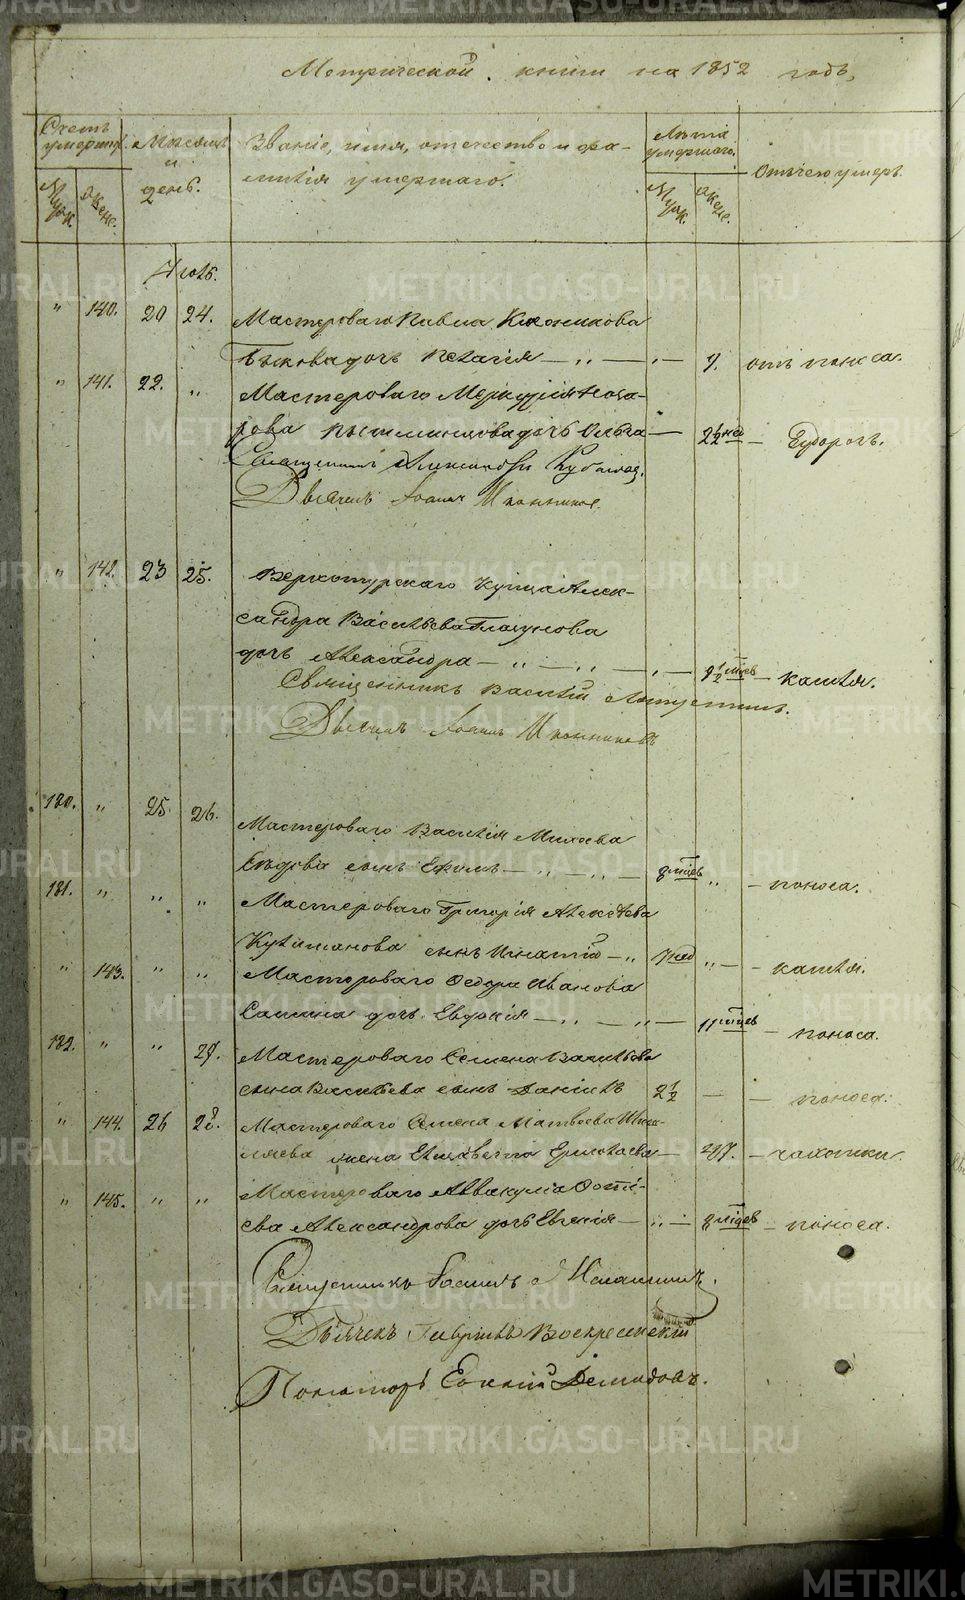 Метрической книги на 1852 годъ,
Счетъ умершихъ. Мѣсяцъ и день. Званіе, имя, отечество и фа-
милія умершаго. Лѣта умершаго. Отъ чего умеръ.
Муж. Жен. Муж. Жен.
Іюль.
" 140. 20 24. Мастероваго Павла
Быкова дочь Пелагія — " — " — 7. отъ поноса.
" 141. 22. " Мастероваго Меркурія Наза-
рова Пышминцова дочь Ольга — 2½ нед — Судорогъ.
Священникъ Александръ
Дьячекъ Іоаннъ Иконниковъ.
" 142. 23 25. Верхотурскаго купца Алек-
сандра Васильева Глазунова
дочь Александра — " — " — " — 9½ мѣсев — кашля.
Священникъ Василій
Дьячекъ Іоаннъ Иконниковъ
180. " 25. 26. Мастероваго Василія Михѣева
сынъ Ефимъ — " — " — 8 мѣсев " — поноса.
181. " " " Мастероваго Григорія Алексѣева
сынъ Игнатій — " 7 нед " — кашля.
" 143. " " Мастероваго Ѳедора Иванова
Сапина дочь Евдокія — " — " — 11 мѣсев — поноса.
182. " " 27. Мастероваго Семена Васильева
сына Васильева сынъ Даніилъ 2½ — — поноса.
" 144. 26 28. Мастероваго Семена Матвѣева
ляева жена Елизавета Ермолаева — 47. — чахотки.
" 145. " " Мастероваго Аввакума Фоті-
ева Александрова дочь Евгенія — " — 8 мѣсев — поноса.
Священникъ Іоаннъ
Дьячекъ Гавріилъ Воскресенскій
Пономарь Демидовъ.
METRIKI.GASO-URAL.RU